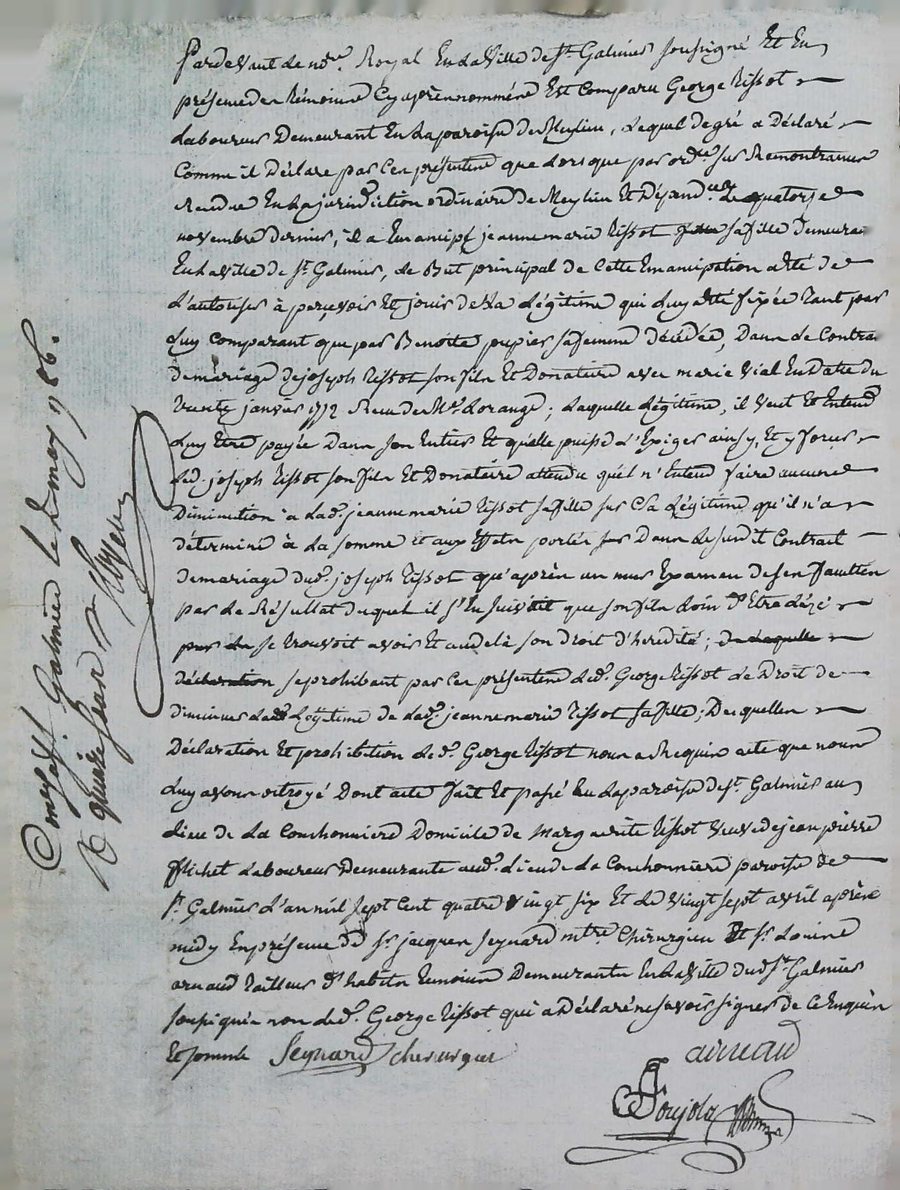 Pardevant le no.re Royal En la Ville de St. Galmier soussigné Et En
présence des témoins Cy après nommés Est Comparu George Tissot
Laboureur Demeurant En la paroisse de Meylieu, Lequel de gré a Déclaré
Comme il Déclare par Ces présentes que Lorsque par ord.ce sur Remontrances
Rendue En la jurisdiction ordinaire de Meylieu Et le quatorze
novembre dernier, il a Emancipé jeanne marie Tissot sa fille demeura
En la Ville de St. Galmier, Le But principal de Cette Emancipation a été de
L'autoriser à percevoir Et jouir de La Légitime qui Luy a été fixée Tant par
Luy Comparant que par Benoite pupier sa femme décédée, Dans Le Contra
de mariage de joseph Tissot son fils Et Donataire avec marie Vial En Datte du
Vingt janvier 1772 Reçu de Me. Lorange; Laquelle Légitime, il veut Et Entend
Luy Etre payée Dans son Entier Et qu'elle puisse L'Exiger ainsy, Et y forcer
Led. joseph Tissot son fils Et Donataire attendu qu'il n'Entend faire aucune
Diminution à Lad. jeanne marie Tissot sa fille sur sa Légitime qu'il n'a
déterminé à La somme Et aux Effets portés Dans Le susdit Contrait
de mariage dud. joseph Tissot qu'après un mur Examen de ses facultés
par Le Résultat duquel il s'En suivoit que son fils Loin d'Etre Lézé
se trouvoit avoir Et au delà son droit d'heredité; de Laquelle
déclaration se prohibant par Ces présentes Led. George Tissot Le Droit de
diminuer Lad. Légitime de Lad. jeanne marie Tissot sa fille; Desquelles
Déclaration Et prohibition Led. George Tissot nous a Requis acte que nous
Luy avons octroyé Dont acte fait Et passé En La paroisse de St. Galmier au
Lieu de La Couchonniere Domicile de Marguerite Tissot veuve de jean pierre
Laboureur Demeurante aud. Lieu de La Couchonniere paroisse de
St. Galmier L'an mil sept Cent quatre vingt six Et Le vingt sept avril après
midy En présence de Sr. jacques Seynard mtre. Chirurgien Et Sr. Louis
arnaud Tailleur d'habits Temoins Demeurants En La Ville dud. St. Galmier
soussignés non Led. George Tissot qui a Déclaré ne savoir signer de Ce Enquis
Et sommé Seynard chirurgien
arnaud
Pourjola
Con.lé à St. Galmier le 2 may 1786.
R quinze sous